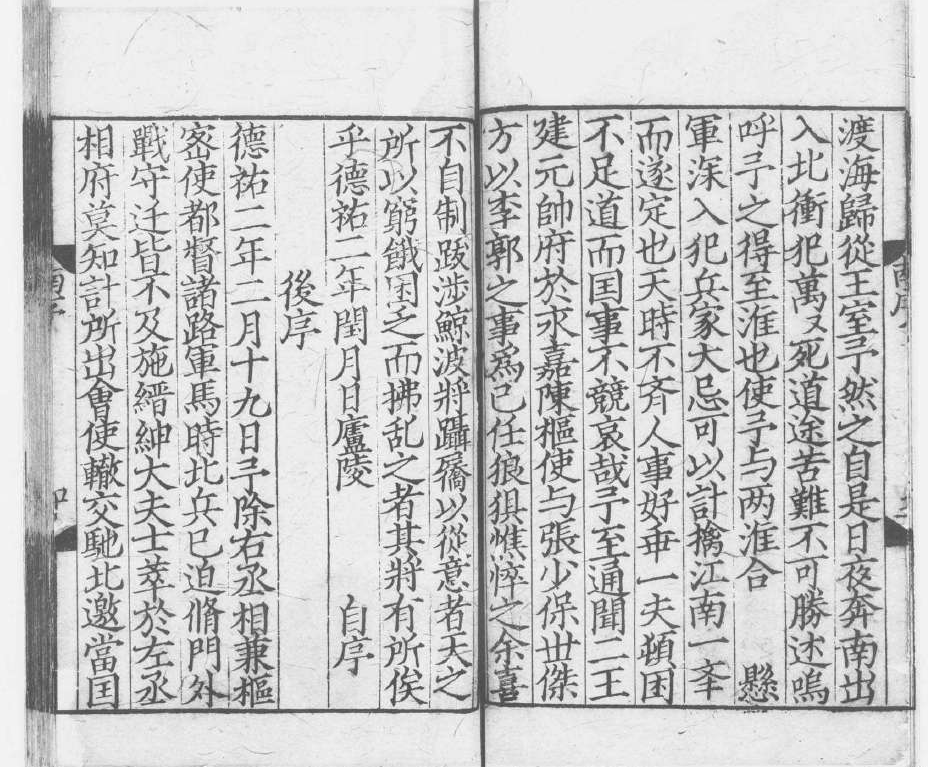 渡海歸從王室予然之自是日夜奔南出
入北衝犯萬〻死道途苦難不可勝述嗚
呼予之得至淮也使予与两淮合　懸
軍深入犯兵家大忌可以計擒江南一举
而遂定也天時不斉人事好乖一夫頓困
不足道而囯事不競哀哉予至通聞二王
建元帥府於永嘉陳樞使与張少保世傑
方以李郭之事為己任狼狽憔悴之余喜
不自制跋涉鯨波將躡屩以從意者天之
所以窮餓困乏而拂乱之者其將有所俟
乎德祐二年閏月日廬陵　自序
後序
德祐二年二月十九日予除右丞相兼樞
密使都督諸路軍馬時北兵已迫脩門外
戰守迁皆不及施縉紳大夫士萃於左丞
相府莫知計所出會使轍交馳北邀當囯